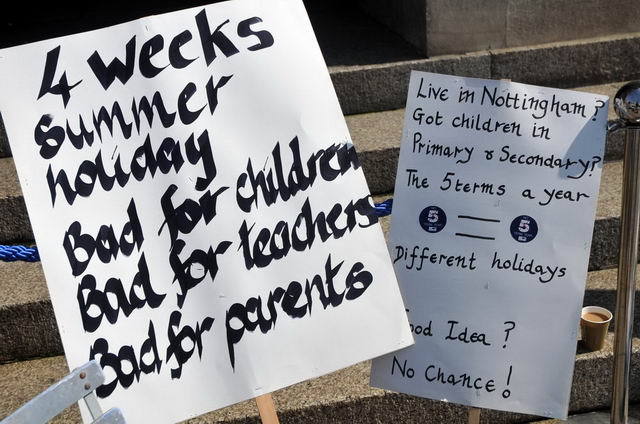 4 weeks
summer
holiday
Bad for children
Bad for teachers
Bad for parents
Live in Nottingham?
Got children in
Primary & Secondary?
The 5 terms a year
5 = 5
Different holidays
ood Idea?
No Chance!